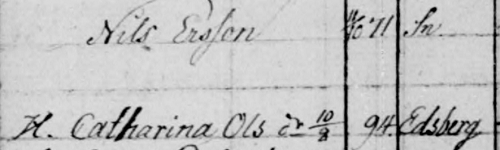 Nils Ersson 71 In
H. Catharina Ols dr 10/8 94 Edsberg